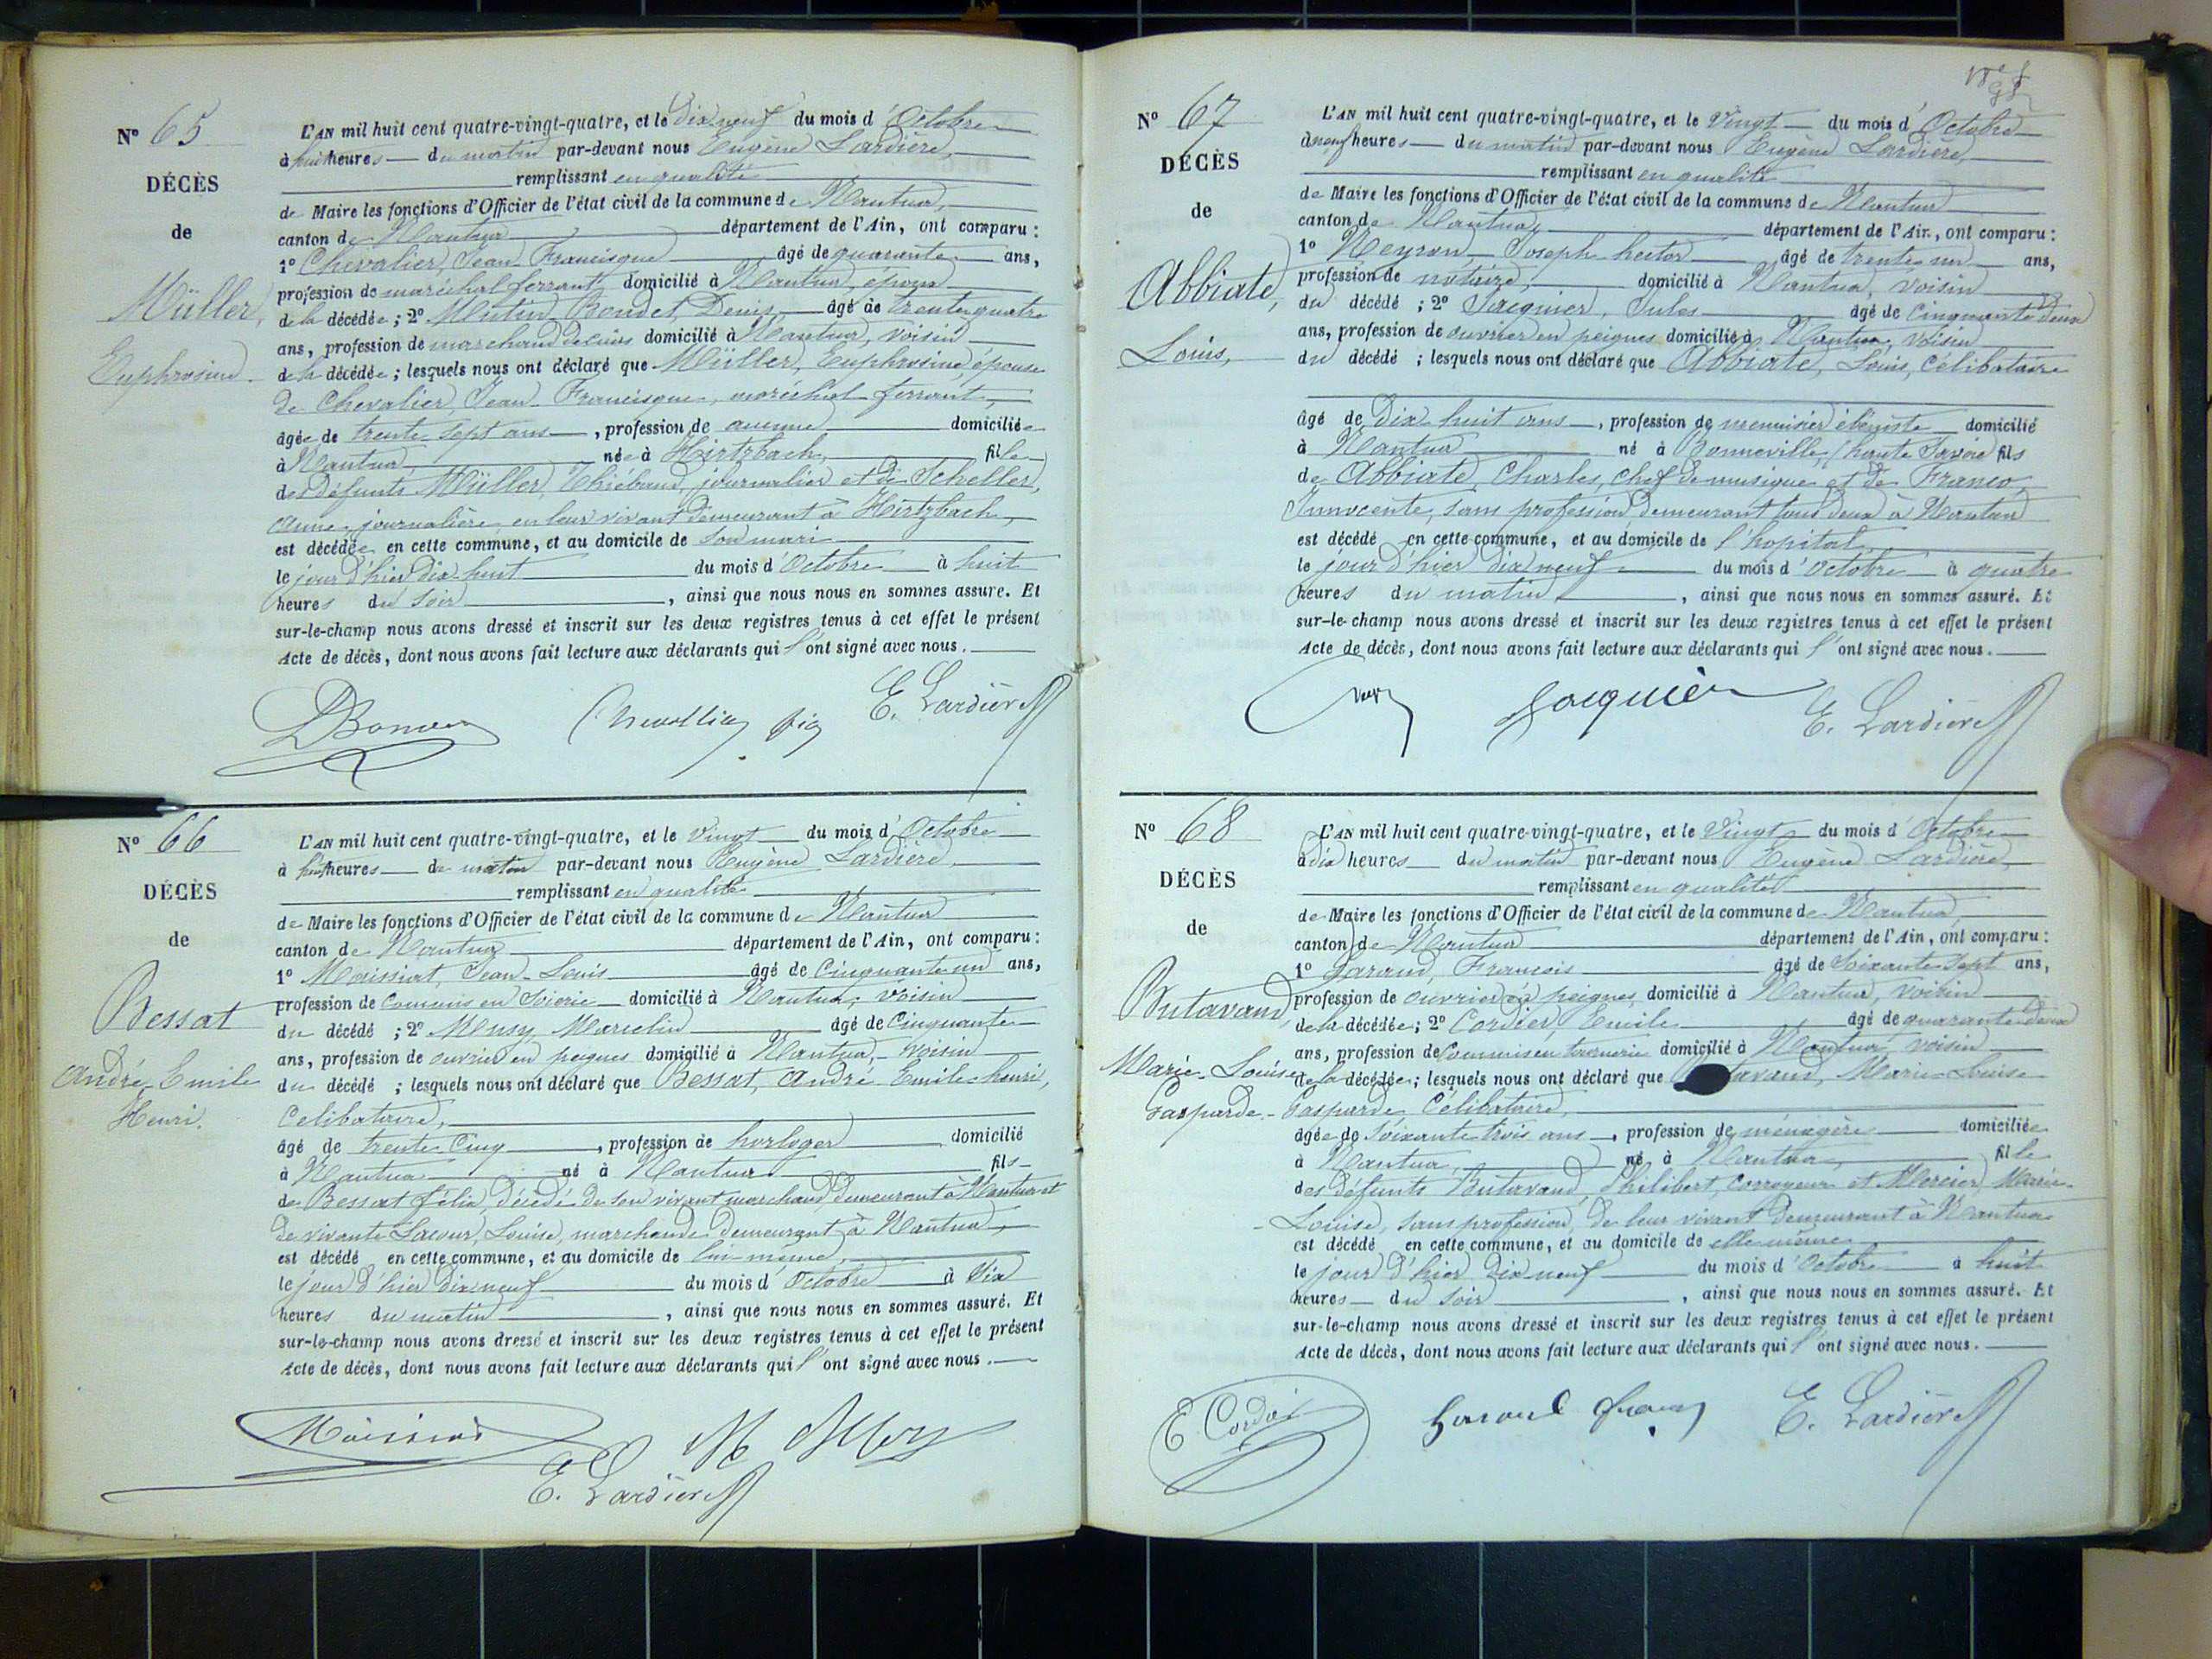 N° 65
DÉCÈS
de
Müller,
Euphrosine.
L'AN mil huit cent quatre-vingt-quatre, et le Dix neuf du mois d'Octobre
à huit heures du matin par-devant nous Eugène Lardière,
remplissant en qualité
de Maire les fonctions d'Officier de l'état civil de la commune de Nantua,
canton de Nantua département de l'Ain, ont comparu :
1° Chevalier, Jean Francisque âgé de quarante ans,
profession de maréchal ferrant, domicilié à Nantua, époux
de la décédée ; 2° Denis, âgé de trente quatre
ans, profession de marchand de domicilié à Nantua, voisin
de la décédée ; lesquels nous ont déclaré que Müller, Euphrosine, épouse
de Chevalier, Jean Francisque, maréchal ferrant,
âgée de trente sept ans, profession de aucune domiciliée
à Nantua, née à Hirtzbach, fille
des défunts Müller, Thiébaud, journalier et de Scheller,
Anne, journalière en leur vivant demeurant à Hirtzbach,
est décédée en cette commune, et au domicile de son mari
le jour d'hier dix huit du mois d'Octobre à huit
heures du soir, ainsi que nous nous en sommes assuré. Et
sur-le-champ nous avons dressé et inscrit sur les deux registres tenus à cet effet le présent
Acte de décès, dont nous avons fait lecture aux déclarants qui l'ont signé avec nous.
E. Lardière
N° 66
DÉCÈS
de
Bessat
André, Emile
Henri.
L'AN mil huit cent quatre-vingt-quatre, et le Vingt du mois d'Octobre
à huit heures du matin par-devant nous Eugène Lardière,
remplissant en qualité
de Maire les fonctions d'Officier de l'état civil de la commune de Nantua
canton de Nantua département de l'Ain, ont comparu :
1° Moissiat, Jean-Louis âgé de Cinquante un ans,
profession de Commis en Soierie domicilié à Nantua, voisin
du décédé ; 2° Musy, Marcelin âgé de Cinquante
ans, profession de ouvrier en peignes domicilié à Nantua, voisin
du décédé ; lesquels nous ont déclaré que Bessat, André Emile henri,
Célibataire,
âgé de trente Cinq, profession de horloger domicilié
à Nantua né à Nantua fils
de Bessat félix, décédé de son vivant marchand, demeurant à Nantua et
de vivante Lacour, Louise, marchande demeurant à Nantua,
est décédé en cette commune, et au domicile de lui-même,
le jour d'hier dix neuf du mois d'Octobre à dix
heures du matin, ainsi que nous nous en sommes assuré. Et
sur-le-champ nous avons dressé et inscrit sur les deux registres tenus à cet effet le présent
Acte de décès, dont nous avons fait lecture aux déclarants qui l'ont signé avec nous.
E. Lardière
N° 67
DÉCÈS
de
Abbiate,
Louis,
L'AN mil huit cent quatre-vingt-quatre, et le Vingt du mois d'Octobre
à neuf heures du matin par-devant nous Eugène Lardière,
remplissant en qualité
de Maire les fonctions d'Officier de l'état civil de la commune de Nantua
canton de Nantua, département de l'Ain, ont comparu :
1° Neyron, Joseph hector âgé de trente un ans,
profession de notaire, domicilié à Nantua, voisin
du décédé ; 2° Jacquier, Jules âgé de Cinquante deux
ans, profession de ouvrier en peignes domicilié à Nantua, voisin
du décédé ; lesquels nous ont déclaré que Abbiate, Louis, célibataire
âgé de dix huit ans, profession de menuisier ébéniste domicilié
à Nantua né à Bonneville (haute Savoie) fils
de Abbiate, Charles, chef de musique et de Franco
Innocente, sans profession demeurant tous deux à Nantua
est décédé en cette commune, et au domicile de l'hopital
le jour d'hier dix neuf du mois d'octobre à quatre
heures du matin, ainsi que nous nous en sommes assuré. Et
sur-le-champ nous avons dressé et inscrit sur les deux registres tenus à cet effet le présent
Acte de décès, dont nous avons fait lecture aux déclarants qui l'ont signé avec nous.
Jacquier E. Lardière
N° 68
DÉCÈS
de
Butavand,
Marie-Louise
Gasparde
L'AN mil huit cent quatre-vingt-quatre, et le Vingt du mois d'Octobre
à dix heures du matin par-devant nous Eugène Lardière,
remplissant en qualité
de Maire les fonctions d'Officier de l'état civil de la commune de Nantua,
canton de Nantua département de l'Ain, ont comparu :
1° François âgé de Soixante Sept ans,
profession de ouvrier en peignes, domicilié à Nantua, voisin
de la décédée ; 2° Cordier Emile âgé de quarante deux
ans, profession de Commis en domicilié à Nantua, voisin
de la décédée ; lesquels nous ont déclaré que avand, Marie-Louise
Gasparde Célibataire,
âgée de soixante trois ans, profession de ménagère domiciliée
à Nantua, né à Nantua, fille
des défunts Butavand, Philibert, corroyeur et Mercier, Marie-
Louise, sans profession, de leur vivant demeurant à Nantua
est décédé en cette commune, et au domicile de elle même
le jour d'hier dix neuf du mois d'Octobre à huit
heures du soir, ainsi que nous nous en sommes assuré. Et
sur-le-champ nous avons dressé et inscrit sur les deux registres tenus à cet effet le présent
Acte de décès, dont nous avons fait lecture aux déclarants qui l'ont signé avec nous.
E. Cordier E. Lardière